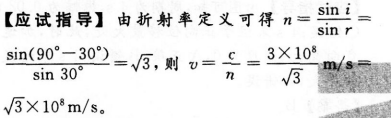 【应试指导】 由折射率定义可得 n = sin i / sin r =
sin(90°−30°) / sin 30° = √3, 则 v = c / n = 3×10⁸ / √3 m/s =
√3×10⁸ m/s。